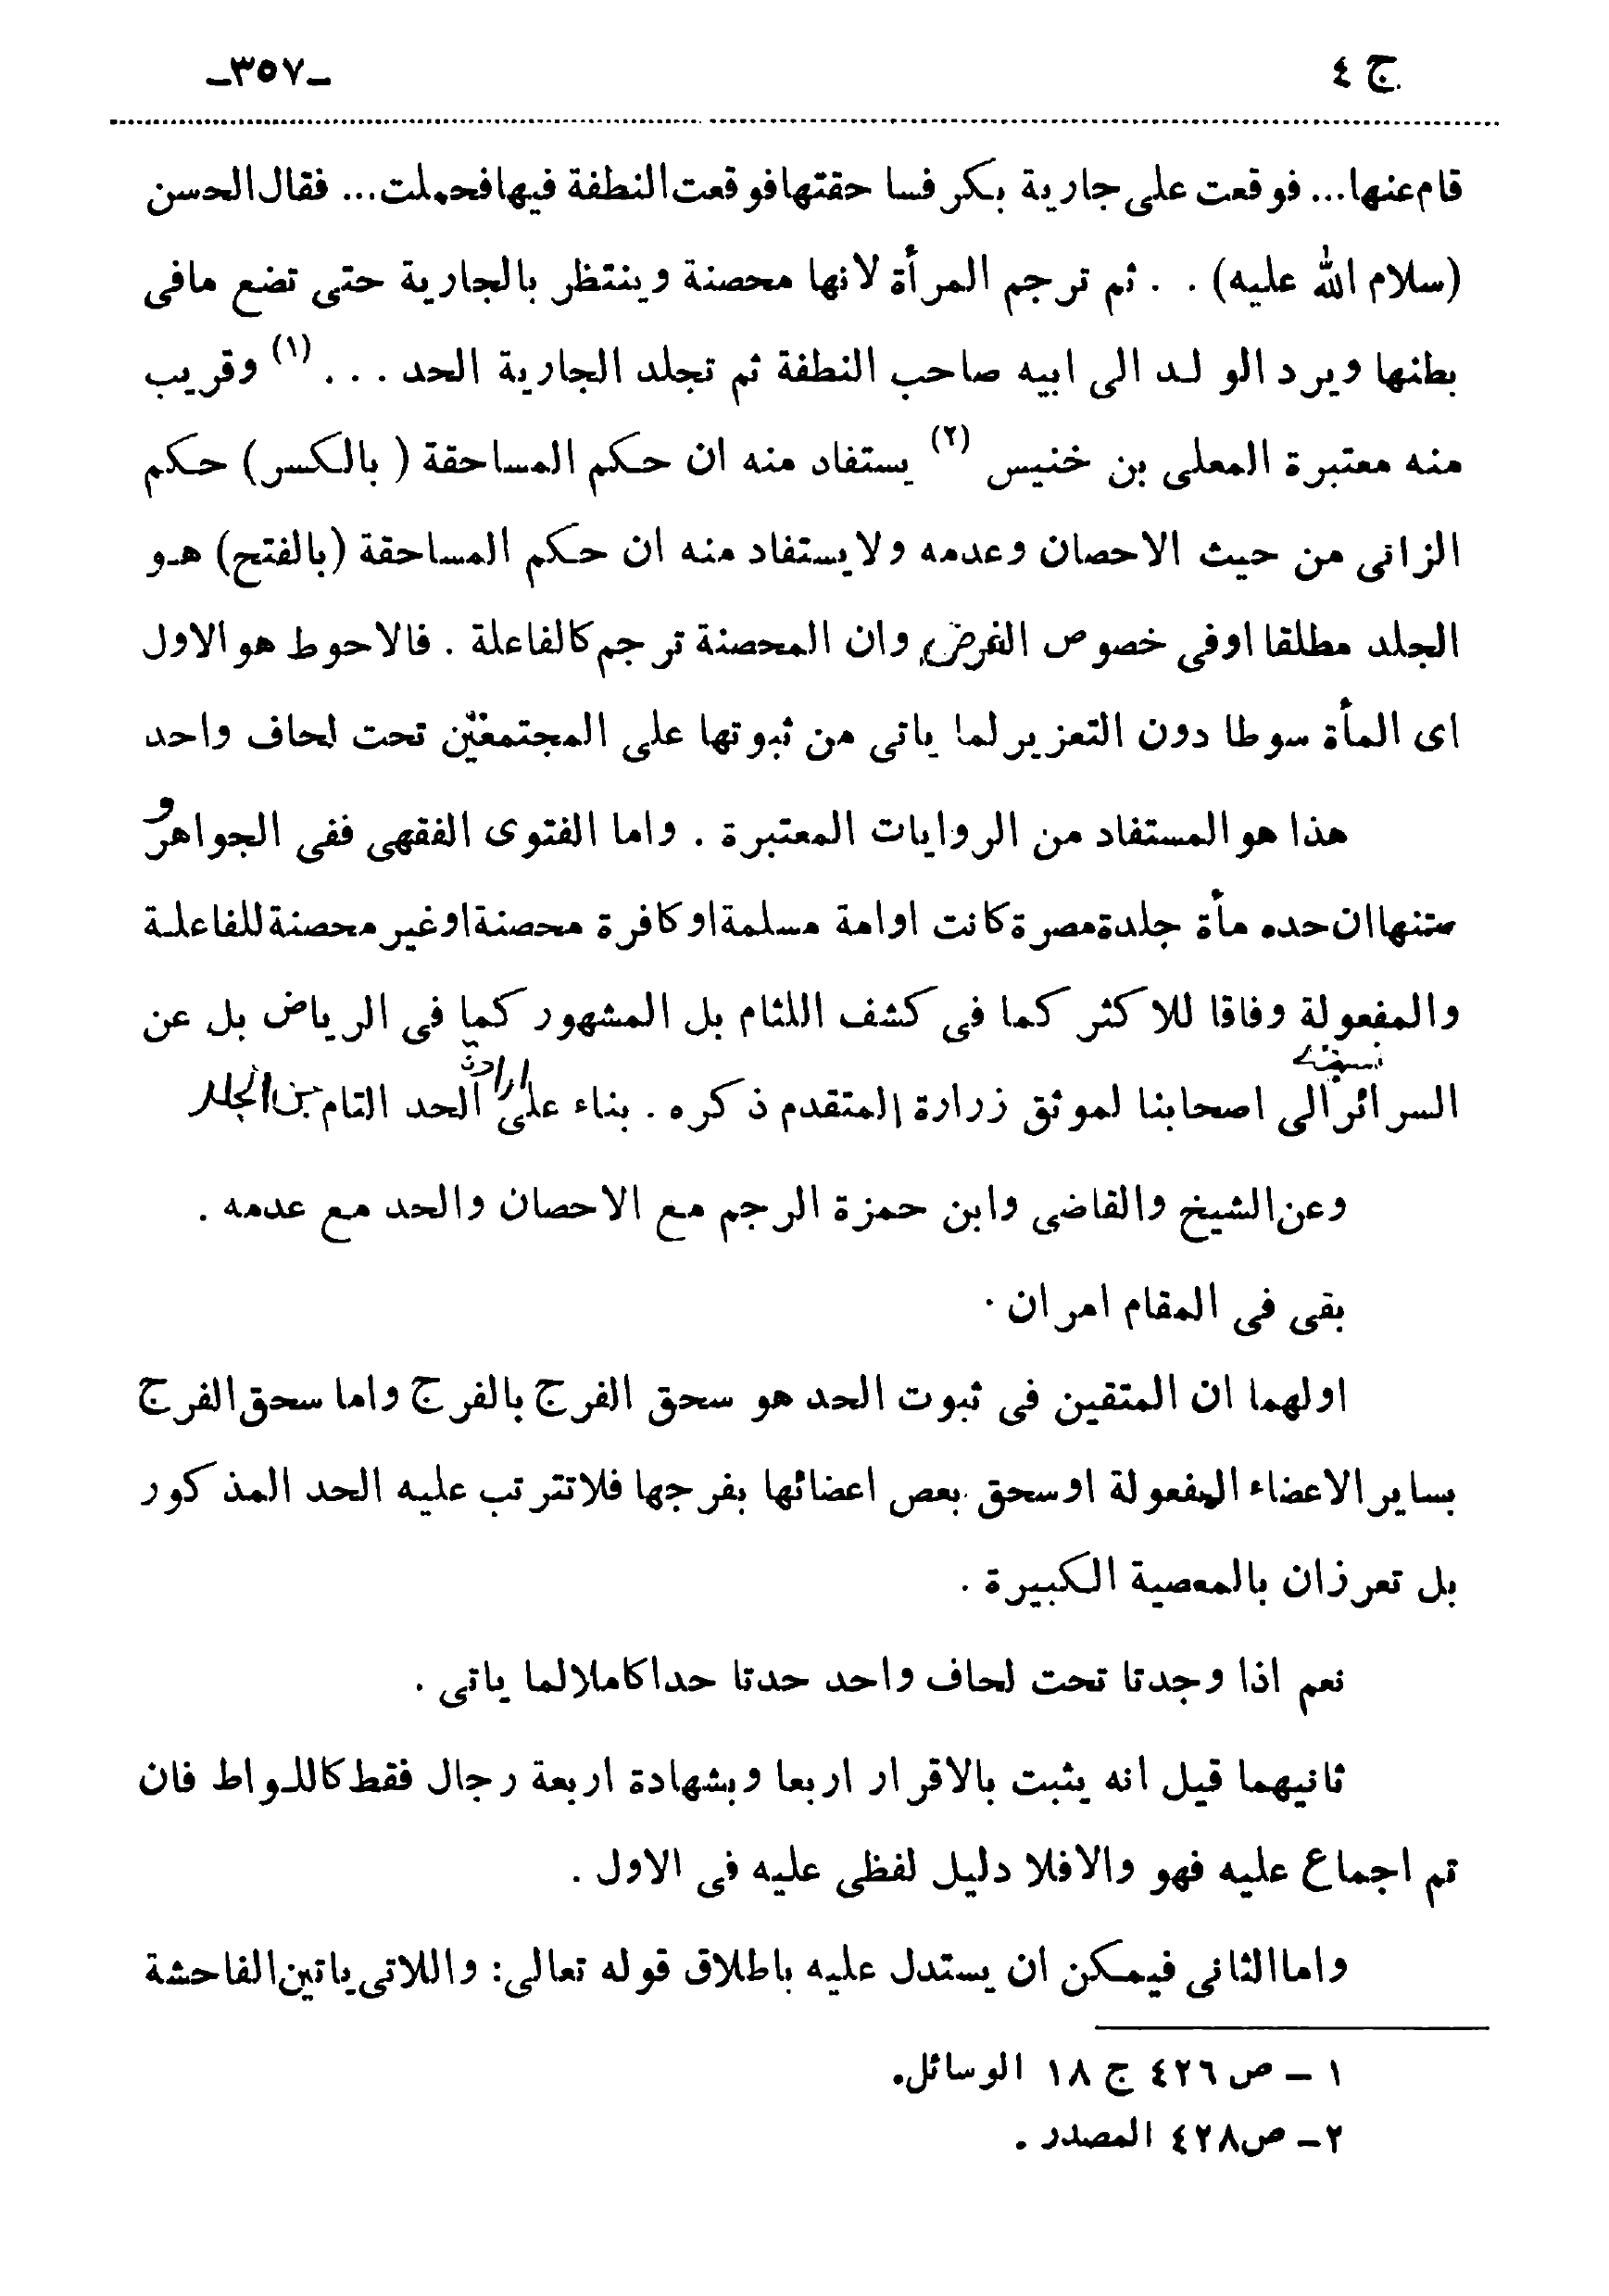 ج ٤
ـ٣٥٧ـ
قام عنها... فوقعت على جارية بكر فساحقتها فوقعت النطفة فيها فحملت... فقال الحسن
(سلام الله عليه) . . ثم ترجم المرأة لانها محصنة وينتظر بالجارية حتى تضع مافى
بطنها ويرد الولد الى ابيه صاحب النطفة ثم تجلد الجارية الحد . . . (١) وقريب
منه معتبرة المعلى بن خنيس (٢) يستفاد منه ان حكم المساحقة ( بالكسر) حكم
الزانى من حيث الاحصان وعدمه ولا يستفاد منه ان حكم المساحقة (بالفتح) هو
الجلد مطلقا اوفى خصوص الفرض وان المحصنة ترجم كالفاعلة . فالاحوط هو الاول
اى المأة سوطا دون التعزير لما ياتى من ثبوتها على المجتمعتين تحت لحاف واحد
هذا هو المستفاد من الروايات المعتبرة . واما الفتوى الفقهى ففى الجواهر و
متنها ان حده مأة جلدة مصرة كانت او امة مسلمة او كافرة محصنة او غير محصنة للفاعلة
والمفعولة وفاقا للاكثر كما فى كشف اللثام بل المشهور كما فى الرياض بل عن
السرائر نسبته الى اصحابنا لموثق زرارة المتقدم ذكره . بناء على ارادة الحد التام من الجلد
وعن الشيخ والقاضى وابن حمزة الرجم مع الاحصان والحد مع عدمه .
بقى فى المقام امران .
اولهما ان المتقين فى ثبوت الحد هو سحق الفرج بالفرج واما سحق الفرج
بساير الاعضاء المفعولة او سحق بعص اعضائها بفرجها فلا تترتب عليه الحد المذكور
بل تعرزان بالمعصية الكبيرة .
نعم اذا وجدتا تحت لحاف واحد حدتا حدا كاملا لما ياتى .
ثانيهما قيل انه يثبت بالاقرار اربعا وبشهادة اربعة رجال فقط كاللواط فان
تم اجماع عليه فهو والا فلا دليل لفظى عليه فى الاول .
واما الثانى فيمكن ان يستدل عليه باطلاق قوله تعالى: واللاتى ياتين الفاحشة
١ – ص ٤٢٦ ج ١٨ الوسائل.
٢– ص٤٢٨ المصدر .